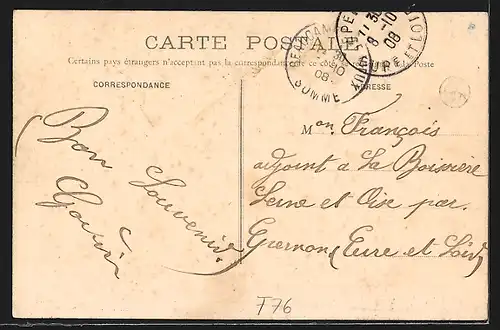 CARTE POSTALE
Certains pays étrangers n'acceptent pas la correspondance de ce côté la Poste
CORRESPONDANCE
ADRESSE
SOMME
10
08
11 30
8 -10
08
EURE ET LOIR
Bon
Souvenir
Mon François
adjoint à La Boissière
Seine et Oise par
(Eure et Loir)
T76